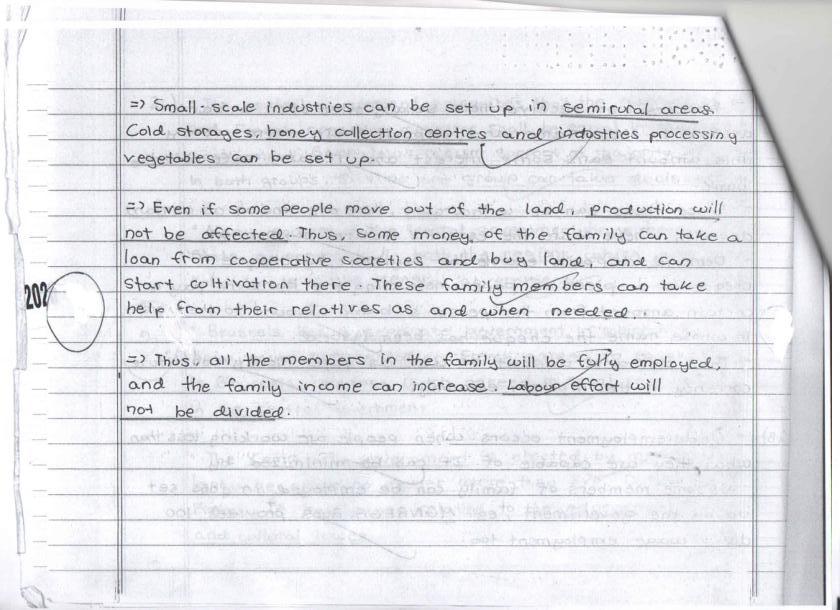 => Small-scale industries can be set up in semirural areas.
Cold storages, honey collection centres and industries processing
vegetables can be set up.
=> Even if some people move out of the land, production will
not be affected. Thus, some money, of the family can take a
loan from cooperative societies and buy land, and can
start cultivation there. These family members can take
202
help from their relatives as and when needed.
=> Thus, all the members in the family will be fully employed,
and the family income can increase. Labour effort will
not be divided.